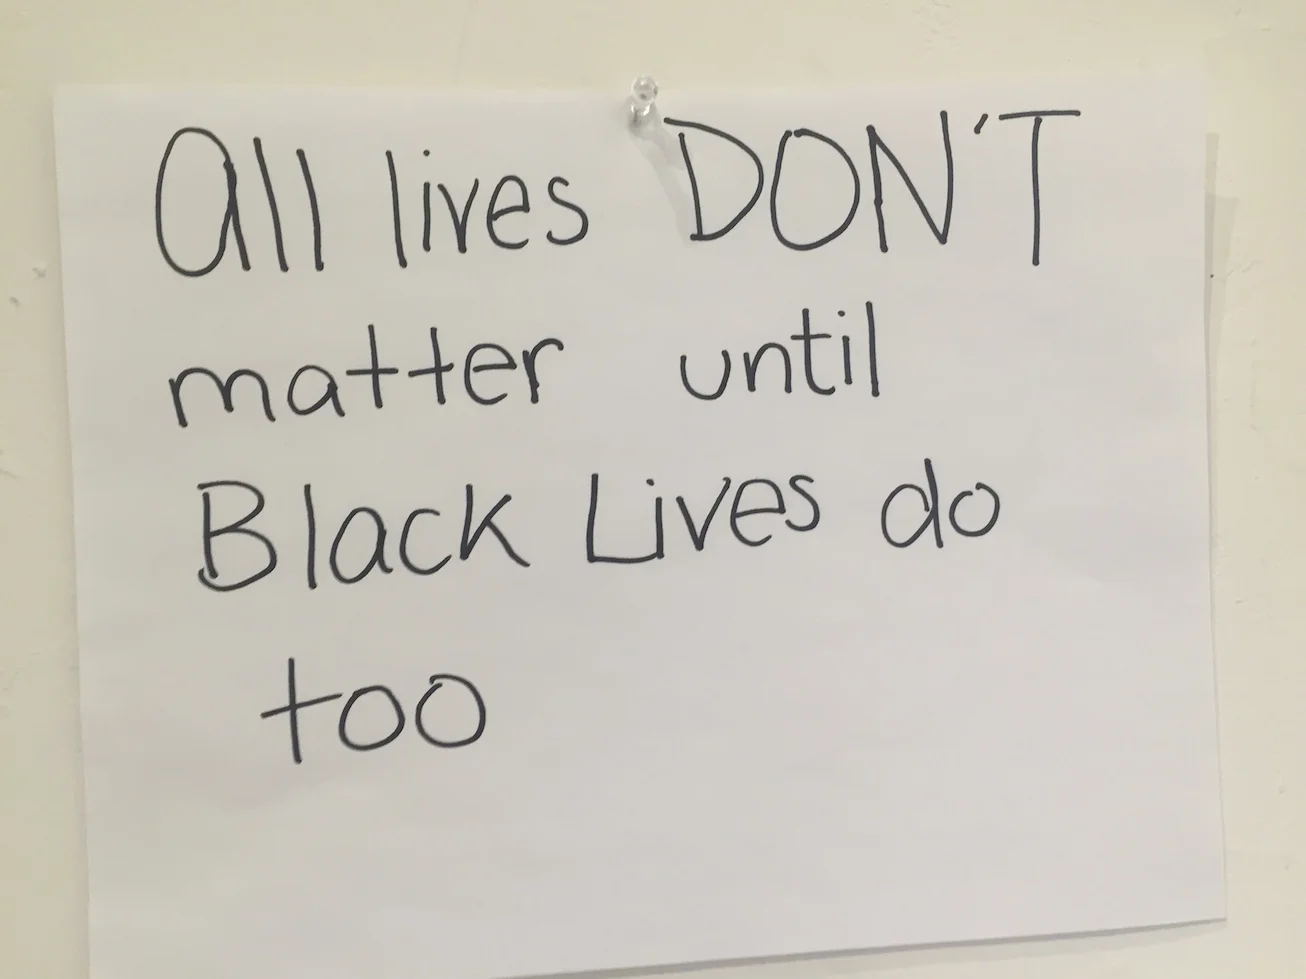 All lives DON'T
matter until
Black Lives do
too